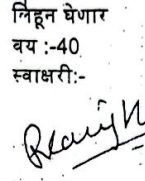 लिहून घेणार
वय :-40
स्वाक्षरी:-